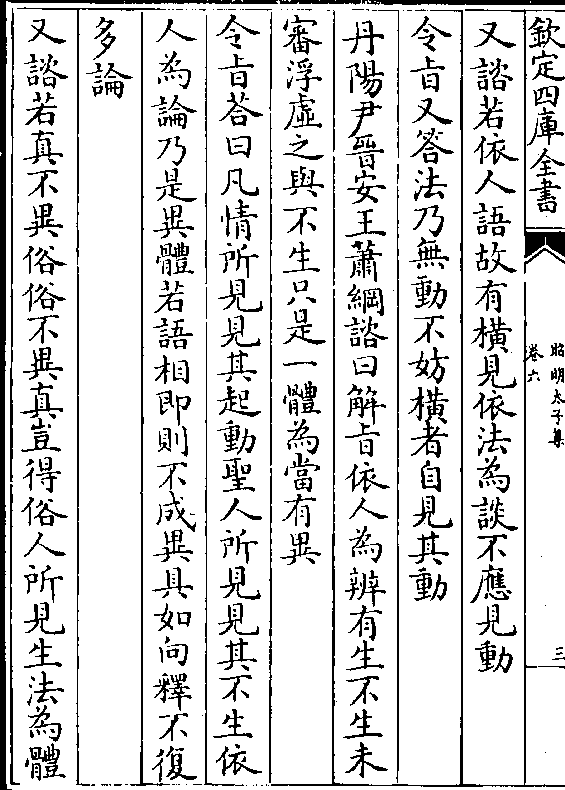 欽定四庫全書
昭明太子集
卷六
三
又諮若依人語故有横見依法為談不應見動
令旨又答法乃無動不妨横者自見其動
丹陽尹晉安王蕭綱諮曰解旨依人為辨有生不生未
審浮虛之與不生只是一體為當有異
令旨荅曰凡情所見見其起動聖人所見見其不生依
人為論乃是異體若語相即則不成異具如向釋不復
多論
又諮若真不異俗俗不異真豈得俗人所見生法為體